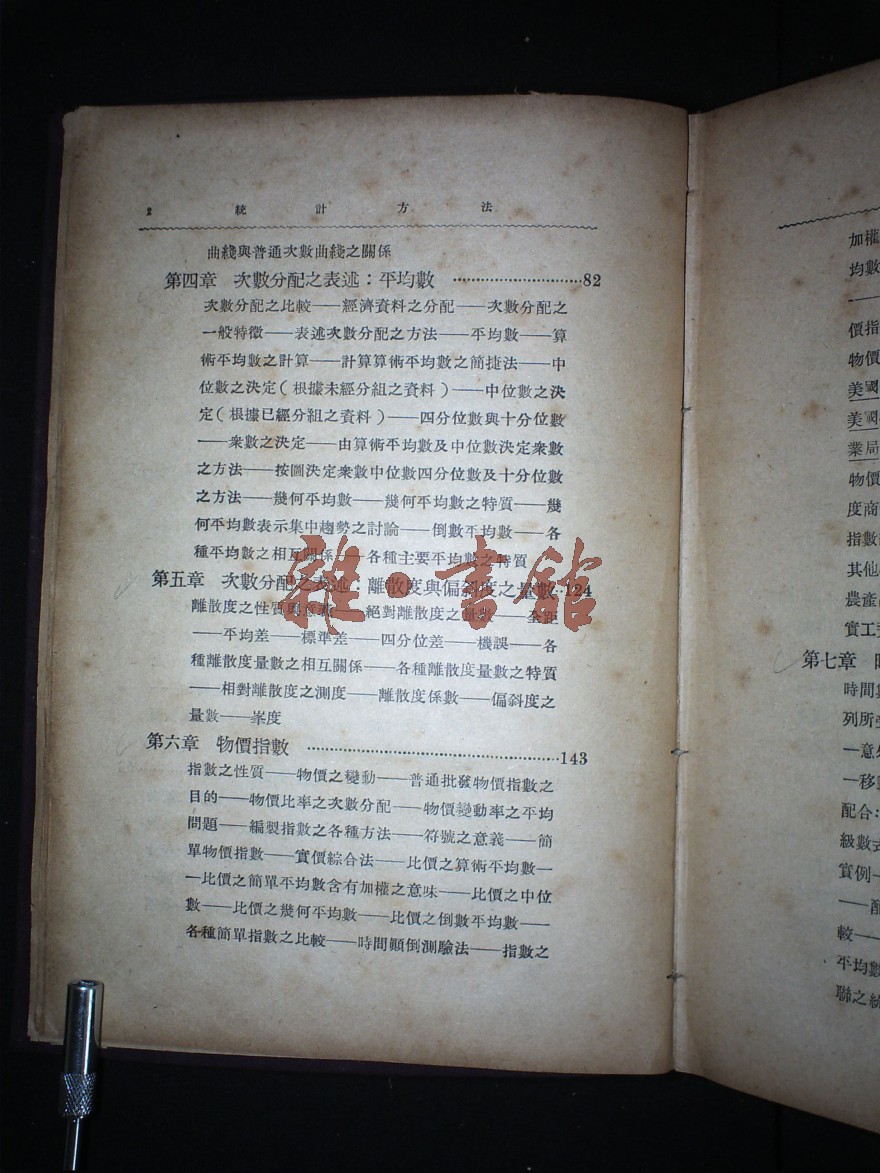 2 統計方法
曲綫與普通次數曲綫之關係
第四章 次數分配之表述：平均數 ………………………82
次數分配之比較——經濟資料之分配——次數分配之
一般特徵——表述次數分配之方法——平均數——算
術平均數之計算——計算算術平均數之簡捷法——中
位數之決定(根據未經分組之資料)——中位數之決
定(根據已經分組之資料)——四分位數與十分位數
——衆數之決定——由算術平均數及中位數決定衆數
之方法——按圖決定衆數中位數四分位數及十分位數
之方法——幾何平均數——幾何平均數之特質——幾
何平均數表示集中趨勢之討論——倒數平均數——各
種平均數之相互關係——各種主要平均數之特質
第五章 次數分配之表述：離散度與偏斜度之量數‥124
離散度之性質與意義——絕對離散度之量數——全距
——平均差——標準差——四分位差——機誤——各
種離散度量數之相互關係——各種離散度量數之特質
——相對離散度之測度——離散度係數——偏斜度之
量數——峯度
第六章 物價指數 ………………………………………143
指數之性質——物價之變動——普通批發物價指數之
目的——物價比率之次數分配——物價變動率之平均
問題——編製指數之各種方法——符號之意義——簡
單物價指數——實價綜合法——比價之算術平均數—
—比價之簡單平均數含有加權之意味——比價之中位
數——比價之幾何平均數——比價之倒數平均數——
各種簡單指數之比較——時間顚倒測驗法——指數之
雜·書館
加權
均數
價指
物價
美國
美國
業局
物價
度商
指數
其他
農產
實工
第七章
時間
列所
—意
—移
配合：
級數式
實例—
——配
較——
平均數
聯之